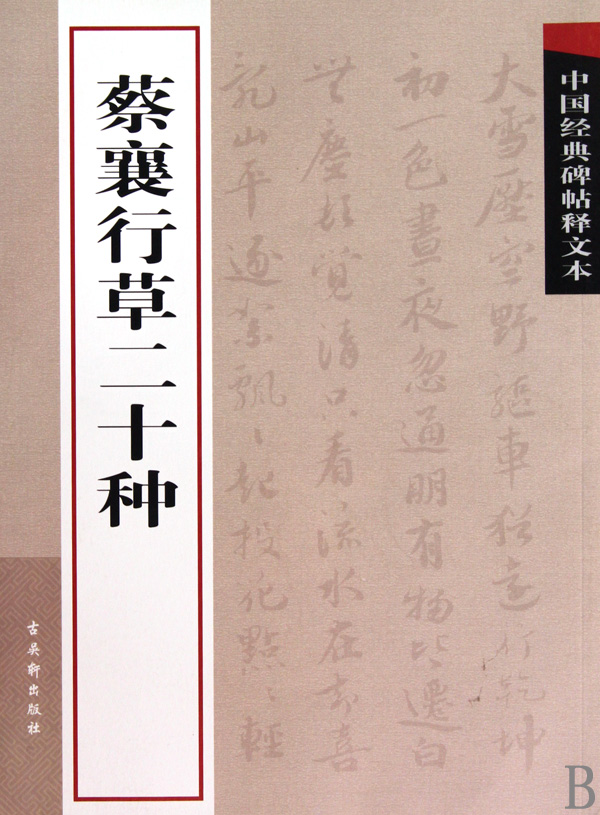 中国经典碑帖释文本
大雪壓空野驅車猶遠行乾坤
初一色晝夜忽通明有物皆遷白
無塵頓覺清只看流水在却喜
亂山平逐絮飄〻起投花點〻輕
蔡襄行草二十种
古吴轩出版社
B